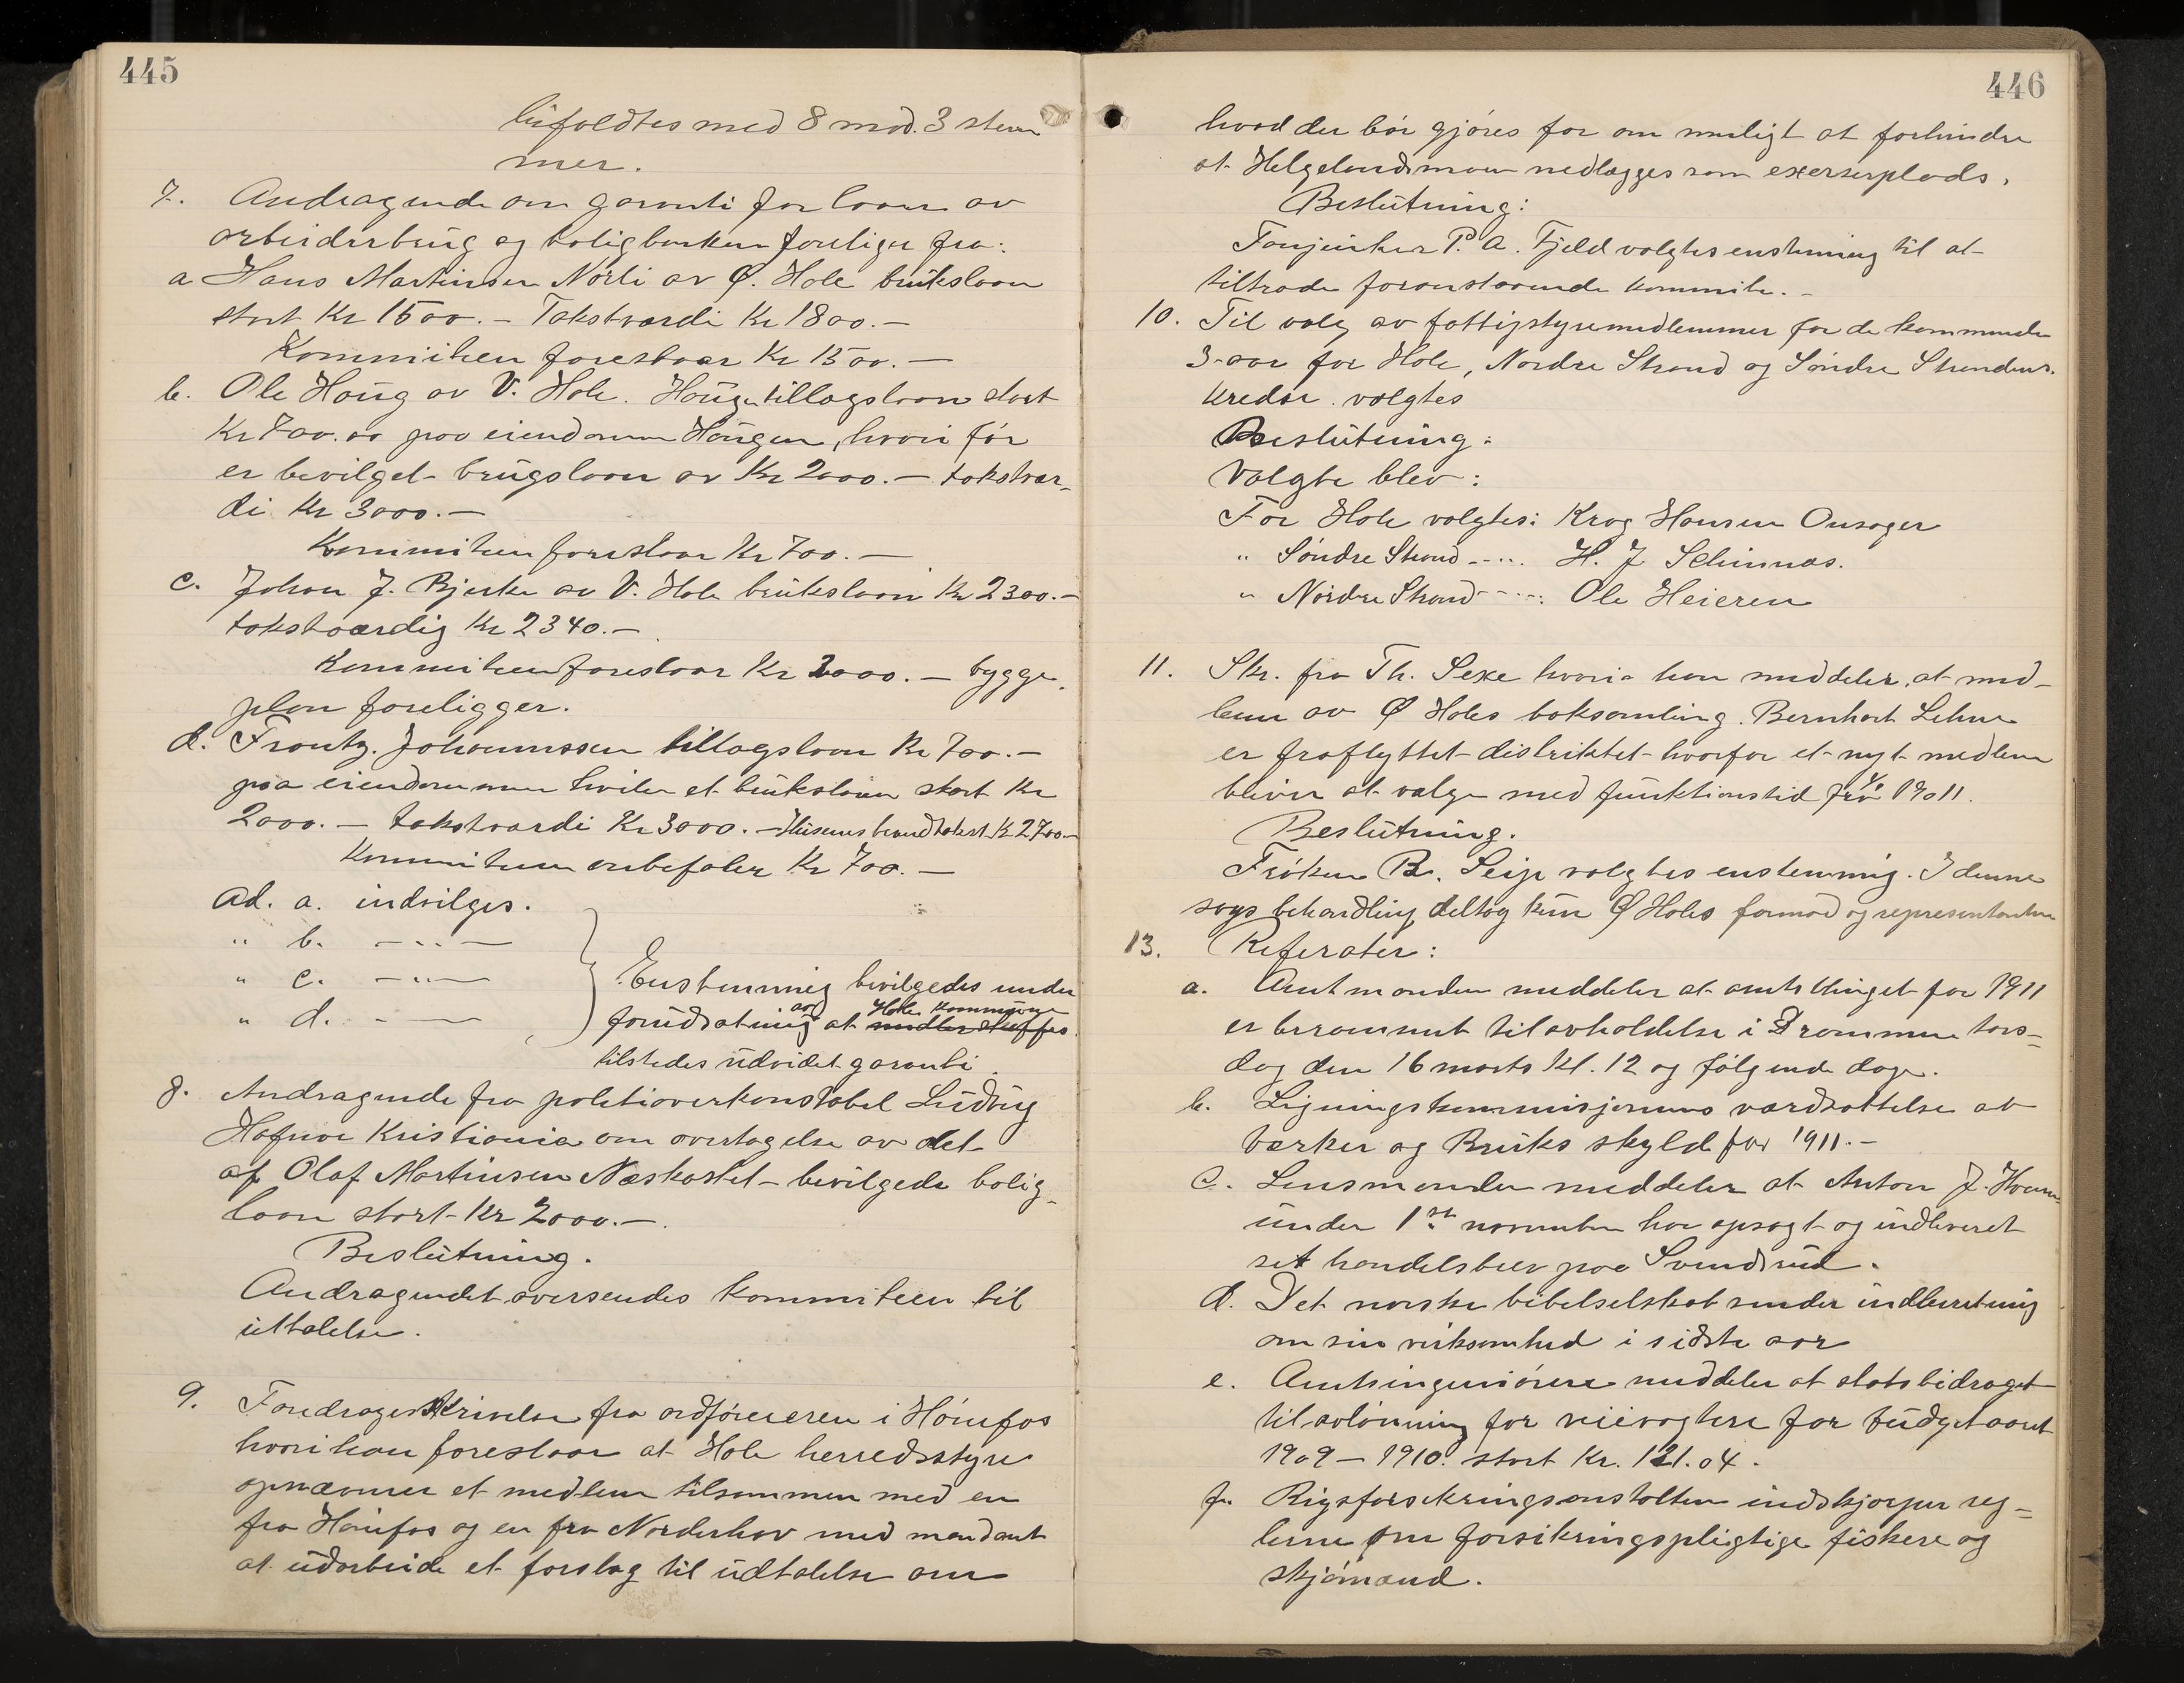 445
bifaldtes med 8 mod 3 stem
mer.
7. Andragende om garanti for laan av
arbeiderbrug og boligbanken foreliger fra:
a Hans Martinsen Nörli av Ø. Hole brukslaan
stort Kr 1500.- Takstværdi Kr 1800.-
Kommiteen foreslaar Kr 1500.-
b. Ole Haug av V. Hole. tillægslaan stort
Kr 700.00 paa eiendommen Haugen, hvori för
er bevilget brugslaan av Kr 2000.- takstvær-
di Kr 3000.-
Kommiteen foreslaar Kr 700.-
c. Johan J. Bjerke av V. Hole brukslaan Kr 2300.-
takstværdig Kr 2340.-
Kommiteen foreslaar Kr 2000.- bygge-
plan foreligger.
d. Frantz. Johannessen tillægslaan Kr 700.-
paa eiendommen hviler et brukslaan stort Kr
2000.- takstværdi Kr 3000.- Husenes brandtakst Kr 2700.-
Kommiteen anbefaler Kr 700.-
Ad. a. indvilges.
" b. -"-
" c. -"-
" d. -"-
Enstemmig bevilgedes under
forudsætning av at Hole kommune
tilstedes udvidet garanti.
8. Andragende fra politioverkonstabel Ludvig
Hafnor Kristiania om overtagelse av det
af Olaf Martinsen Næskastet bevilgede bolig-
laan stort Kr 2000.-
Beslutning.
Andragendet oversendes kommiteen til
uttalelse.
9. Foredrages Skrivelse fra ordføreren i Hönefos
hvori han foreslaar at Hole herredsstyre
opnævner et medlem tilsammen med en
fra Hönefos og en fra Norderhov med mandant
at udarbeide et forslag til udtalelse om
446
hvad der bör gjöres for om muligt at forhindre
at Helgelandsmoen nedlægges som exerserplads.
Beslutning:
Fanjunker P. A. Fjeld valgtes enstemmig til at
tiltræde foranstaaende kommite.-
10. Til valg av fattigstyremedlemmer for de kommende
3-aar for Hole, Nordre Strand og Söndre Strandens
kredse. valgtes
Beslutning:
Valgte blev:
For Hole valgtes: Krag Hansen Onsager
" Söndre Strand ----. H. J. Selinnæs.
" Nordre Strand ----: Ole Heieren
11. Skr. fra Th. Sexe hvori han meddeler, at med-
lem av Ø Holes boksamling. Bernhart Lehne
er fraflyttet distriktet hvorfor et nyt medlem
bliver at vælge med funktionstid fra 1/1 1911.
Beslutning.
Fröken B. Seip valgtes enstemmig. I denne
sags behandling deltog kun Ø Holes formænd og representanter
13. Referater:
a. Amtmanden meddeler at amtsthinget for 1911
er berammet til avholdelse i Drammen tors-
dag den 16 marts Kl. 12 og fölgende dage.
b. Ligningskommisjonens værdsættelse av
Værker og Bruks skyld for 1911.-
c. Lensmanden meddeler at Anton J.
under 1ste november har opsagt og indleveret
sit handelsbrev paa Svendsrud.
d. Det norske bibelselskab sender indberetning
om sin virksomhed i sidste aar
e. Amtsingeniören meddeler at statsbidraget
til avlönning for veivogtere for budgetaaret
1909 - 1910. stort Kr. 121.04.
f. Rigsforsikringsanstalten indskjærper reg-
lerne om forsikringspligtige fiskere og
sjömænd.